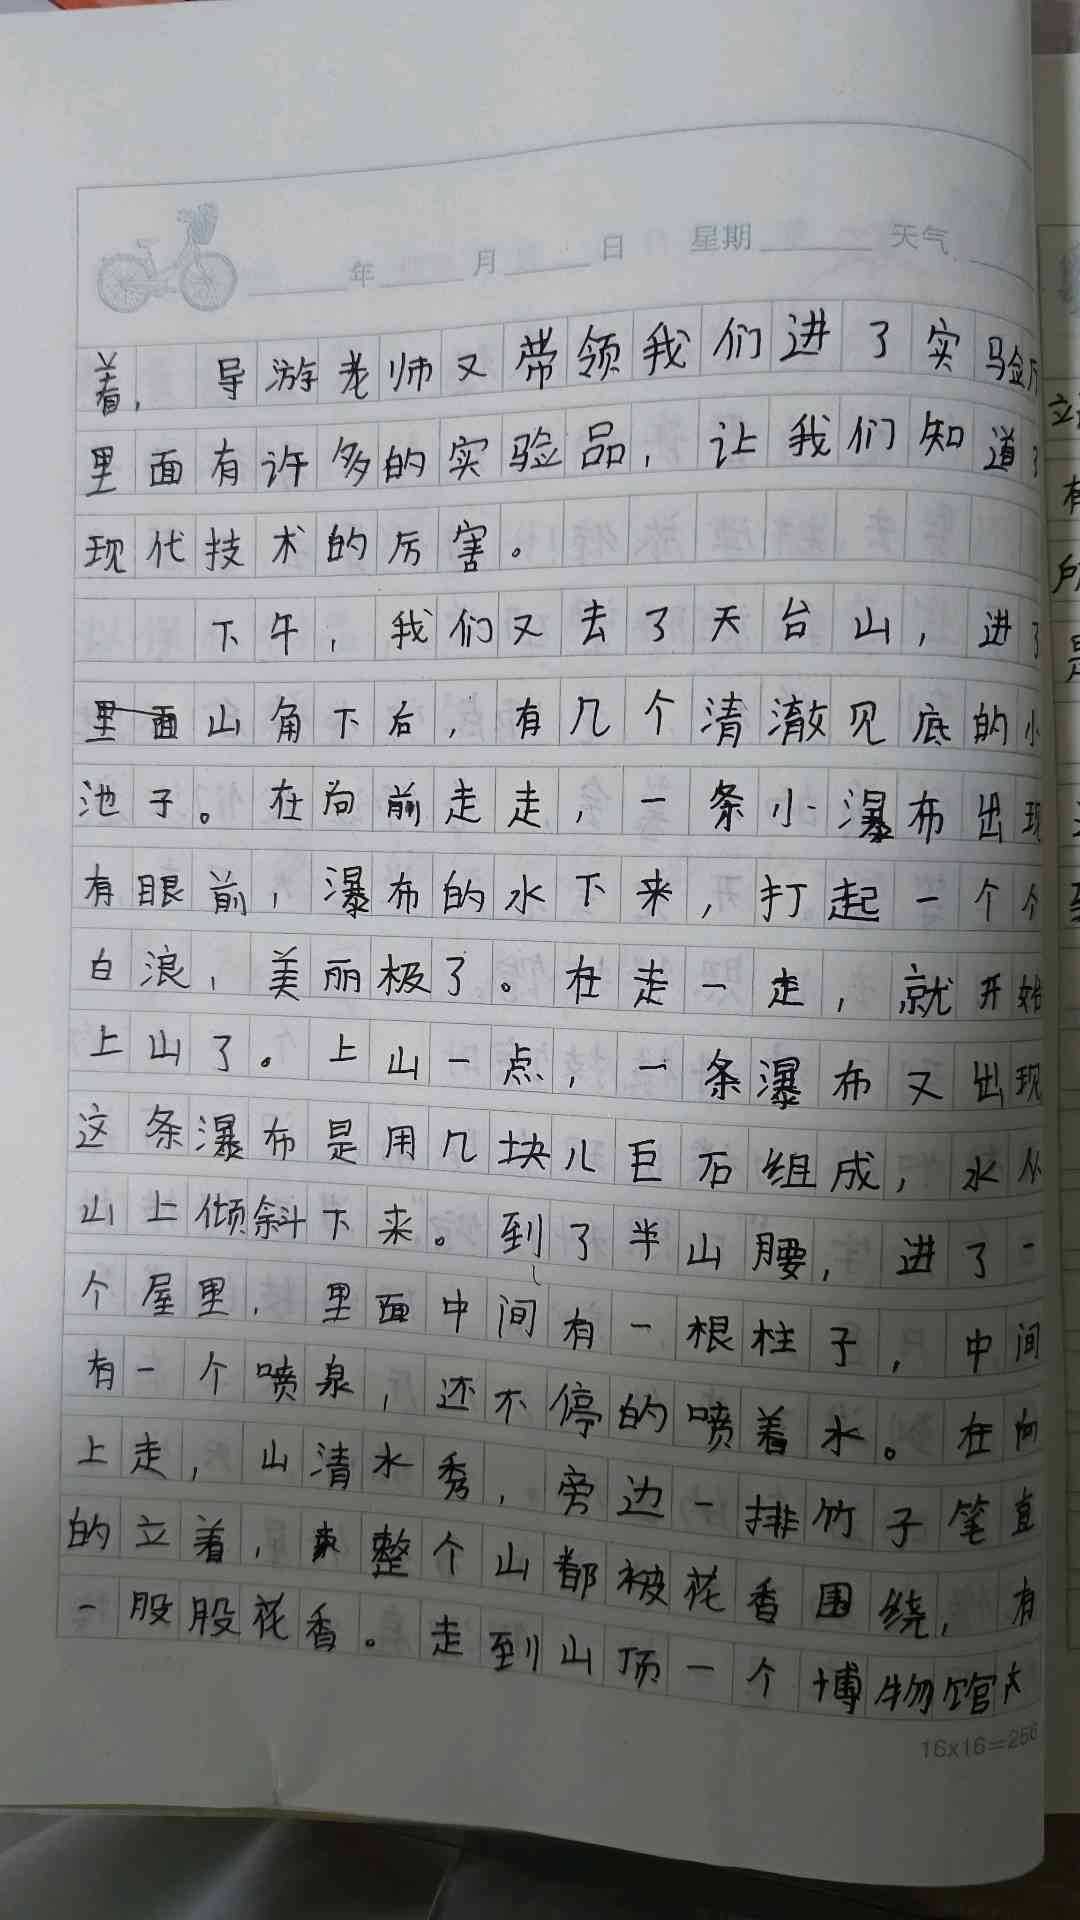 年 月 日 星期 天气
着，导游老师又带领我们进了实验厅
里面有许多的实验品，让我们知道了
现代技术的厉害。
下午，我们又去了天台山，进了
里面山角下后，有几个清澈见底的小
池子。在向前走走，一条小瀑布出现
有眼前，瀑布的水下来，打起一个个
白浪，美丽极了。在走一走，就开始
上山了。上山一点，一条瀑布又出现
这条瀑布是用几块儿巨石组成，水从
山上倾斜下来。到了半山腰，进了一
个屋里，里面中间有一根柱子，中间
有一个喷泉，还不停的喷着水。在向
上走，山清水秀，旁边一排竹子笔直
的立着，整个山都被花香围绕，有
一股股花香。走到山顶一个博物馆大
16x16=256